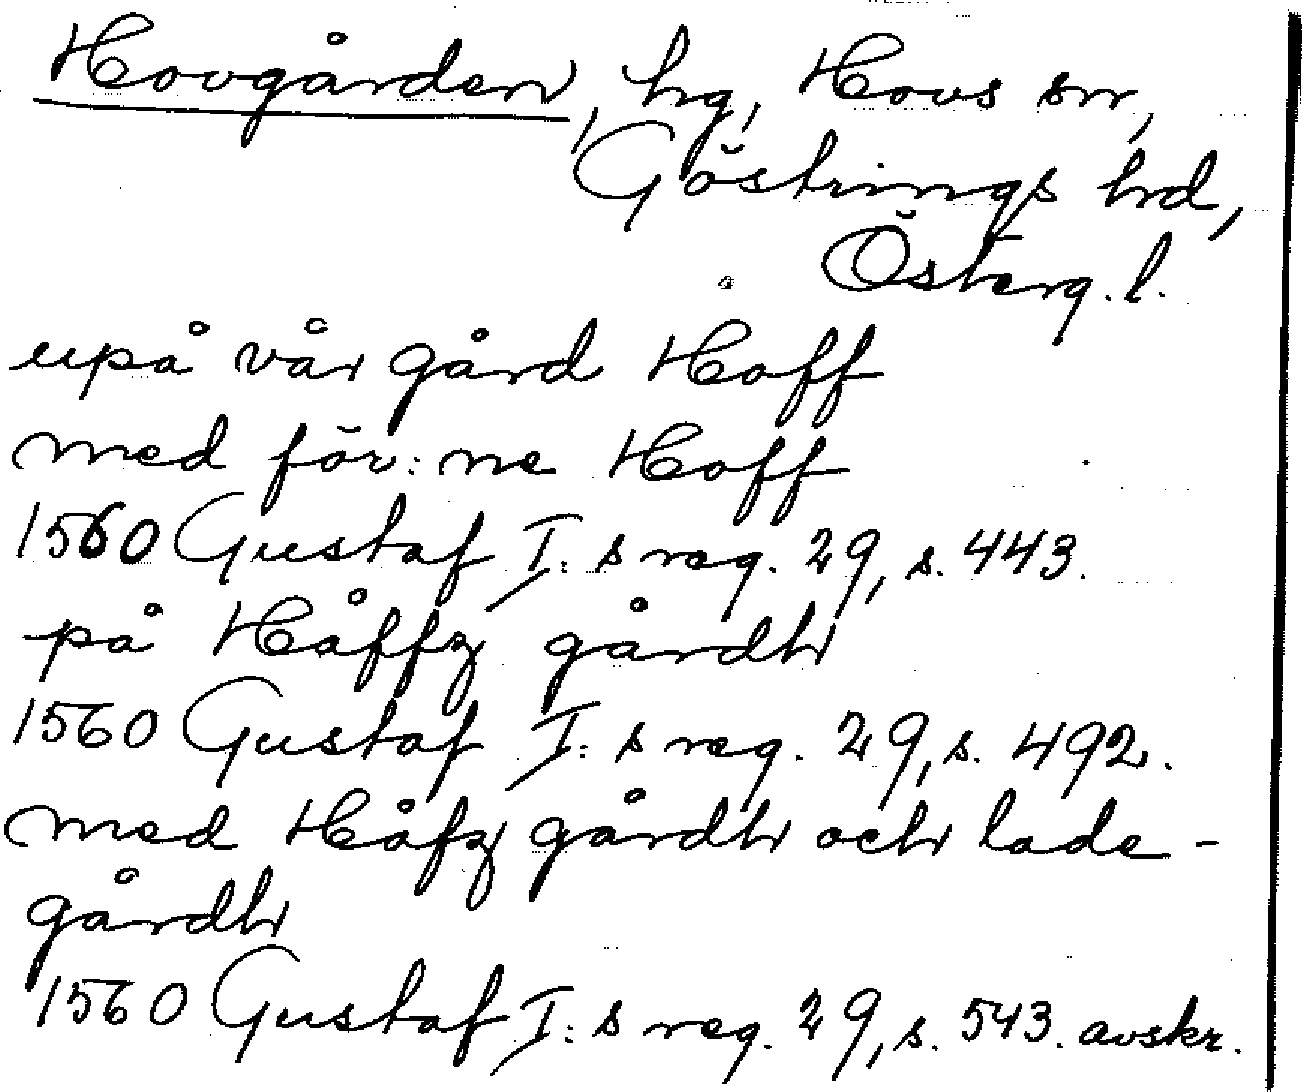 Hovgården, hg, Hovs sn,
Göstrings hd,
Österg. l.
upå vår gård Hoff
med för:ne Hoff
1560 Gustaf I:s reg. 29, s. 443.
på Håffz gårdh
1560 Gustaf I:s reg. 29, s. 492.
med Håfz gårdh och lade-
gårdh
1560 Gustaf I:s reg. 29, s. 543. avskr.